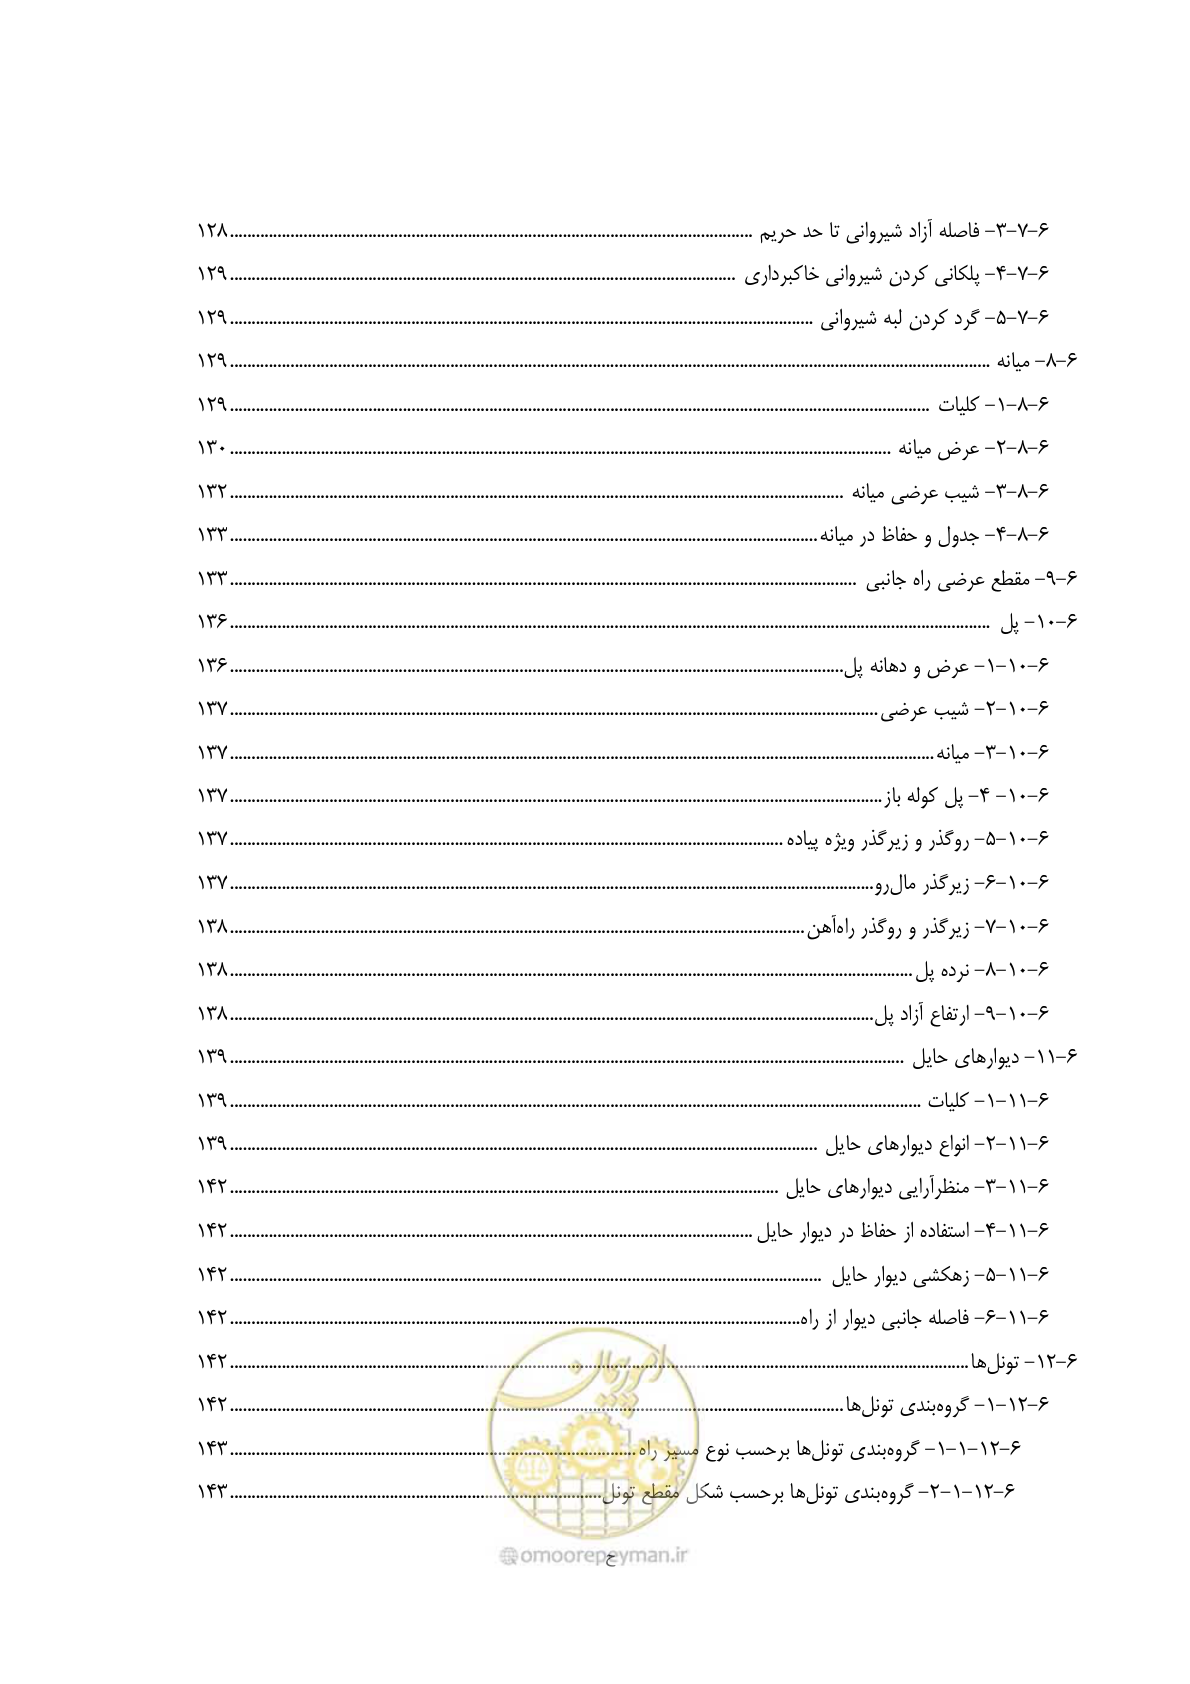 ۶-۷-۳- فاصله آزاد شیروانی تا حد حریم ........ ۱۲۸
۶-۷-۴- پلکانی کردن شیروانی خاکبرداری ........ ۱۲۹
۶-۷-۵- گرد کردن لبه شیروانی ........ ۱۲۹
۶-۸- میانه ........ ۱۲۹
۶-۸-۱- کلیات ........ ۱۲۹
۶-۸-۲- عرض میانه ........ ۱۳۰
۶-۸-۳- شیب عرضی میانه ........ ۱۳۲
۶-۸-۴- جدول و حفاظ در میانه ........ ۱۳۳
۶-۹- مقطع عرضی راه جانبی ........ ۱۳۳
۶-۱۰- پل ........ ۱۳۶
۶-۱۰-۱- عرض و دهانه پل ........ ۱۳۶
۶-۱۰-۲- شیب عرضی ........ ۱۳۷
۶-۱۰-۳- میانه ........ ۱۳۷
۶-۱۰- ۴- پل کوله باز ........ ۱۳۷
۶-۱۰-۵- روگذر و زیرگذر ویژه پیاده ........ ۱۳۷
۶-۱۰-۶- زیرگذر مال‌رو ........ ۱۳۷
۶-۱۰-۷- زیرگذر و روگذر راه‌آهن ........ ۱۳۸
۶-۱۰-۸- نرده پل ........ ۱۳۸
۶-۱۰-۹- ارتفاع آزاد پل ........ ۱۳۸
۶-۱۱- دیوارهای حایل ........ ۱۳۹
۶-۱۱-۱- کلیات ........ ۱۳۹
۶-۱۱-۲- انواع دیوارهای حایل ........ ۱۳۹
۶-۱۱-۳- منظرآرایی دیوارهای حایل ........ ۱۴۲
۶-۱۱-۴- استفاده از حفاظ در دیوار حایل ........ ۱۴۲
۶-۱۱-۵- زهکشی دیوار حایل ........ ۱۴۲
۶-۱۱-۶- فاصله جانبی دیوار از راه ........ ۱۴۲
۶-۱۲- تونل‌ها ........ ۱۴۲
۶-۱۲-۱- گروه‌بندی تونل‌ها ........ ۱۴۲
۶-۱۲-۱-۱- گروه‌بندی تونل‌ها برحسب نوع مسیر راه ........ ۱۴۳
۶-۱۲-۱-۲- گروه‌بندی تونل‌ها برحسب شکل مقطع تونل ........ ۱۴۳
امور پیمان
@omoorepeyman.ir
ح